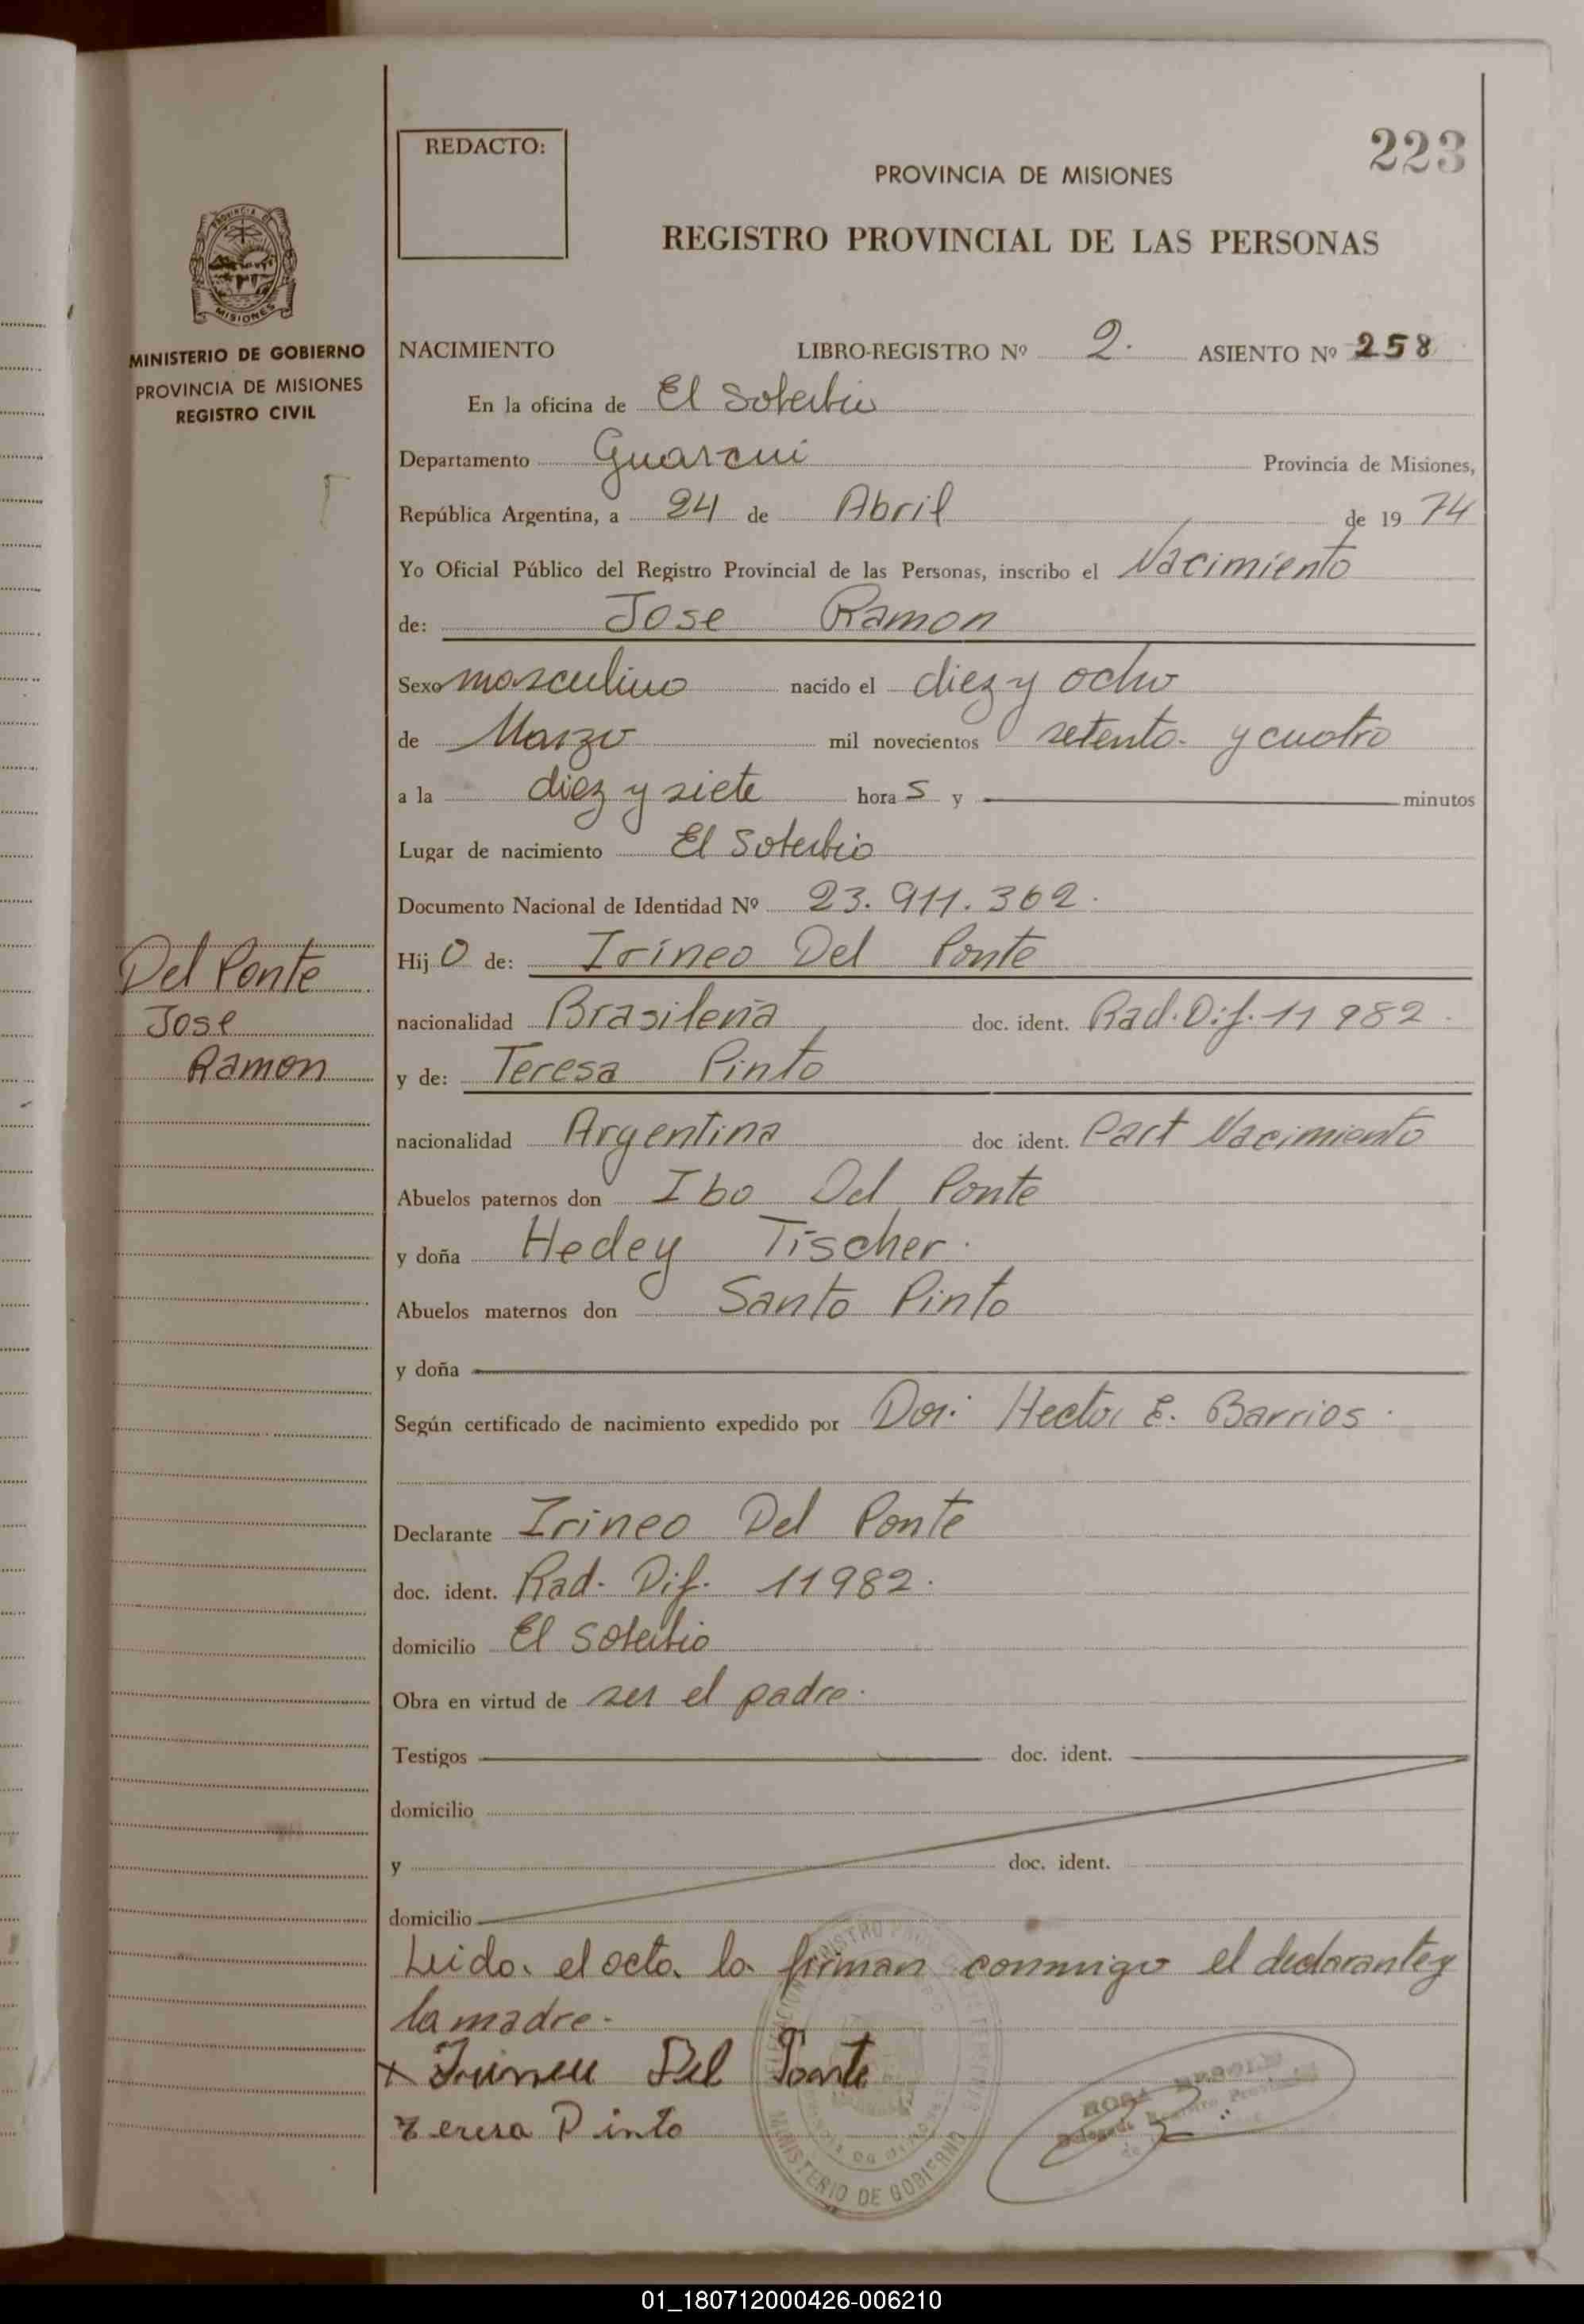 223
REDACTO:
PROVINCIA DE MISIONES
REGISTRO PROVINCIAL DE LAS PERSONAS
PROVINCIA DE
MISIONES
MINISTERIO DE GOBIERNO
PROVINCIA DE MISIONES
REGISTRO CIVIL
NACIMIENTO LIBRO-REGISTRO Nº 2. ASIENTO Nº 258
En la oficina de El Soberbio
Departamento Guarani Provincia de Misiones,
República Argentina, a 24 de Abril de 1974
Yo Oficial Público del Registro Provincial de las Personas, inscribo el Nacimiento
de: Jose Ramon
Sexo masculino nacido el diez y ocho
de Marzo mil novecientos setenta y cuatro
a la diez y siete horas y minutos
Lugar de nacimiento El Soberbio
Documento Nacional de Identidad Nº 23.911.362.
Del Ponte
Jose
Ramon
Hijo de: Irineo Del Ponte
nacionalidad Brasileña doc. ident. Rad. Dif. 11982.
y de: Teresa Pinto
nacionalidad Argentina doc ident. Part Nacimiento
Abuelos paternos don Ibo Del Ponte
y doña Hedey Tischer.
Abuelos maternos don Santo Pinto
y doña
Según certificado de nacimiento expedido por Dor. Hector E. Barrios.
Declarante Irineo Del Ponte
doc. ident. Rad. Dif. 11982.
domicilio El Soberbio
Obra en virtud de ser el padre.
Testigos doc. ident.
domicilio
y doc. ident.
domicilio
Leida el acta la firman conmigo el declarante y
la madre.
x Irineu Del Ponte
Teresa Pinto
MINISTERIO DE GOBIERNO
ROSA
01_180712000426-006210